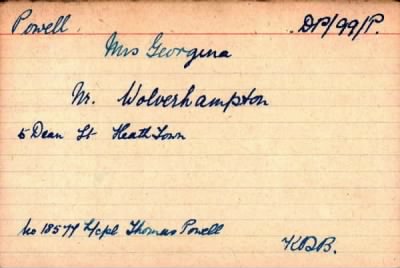 Powell. DP/99/P.
Mrs Georgina
Nr. Wolverhampton
5 Dean St Heath Town
No 18577 L/cpl Thomas Powell
K.D.B.